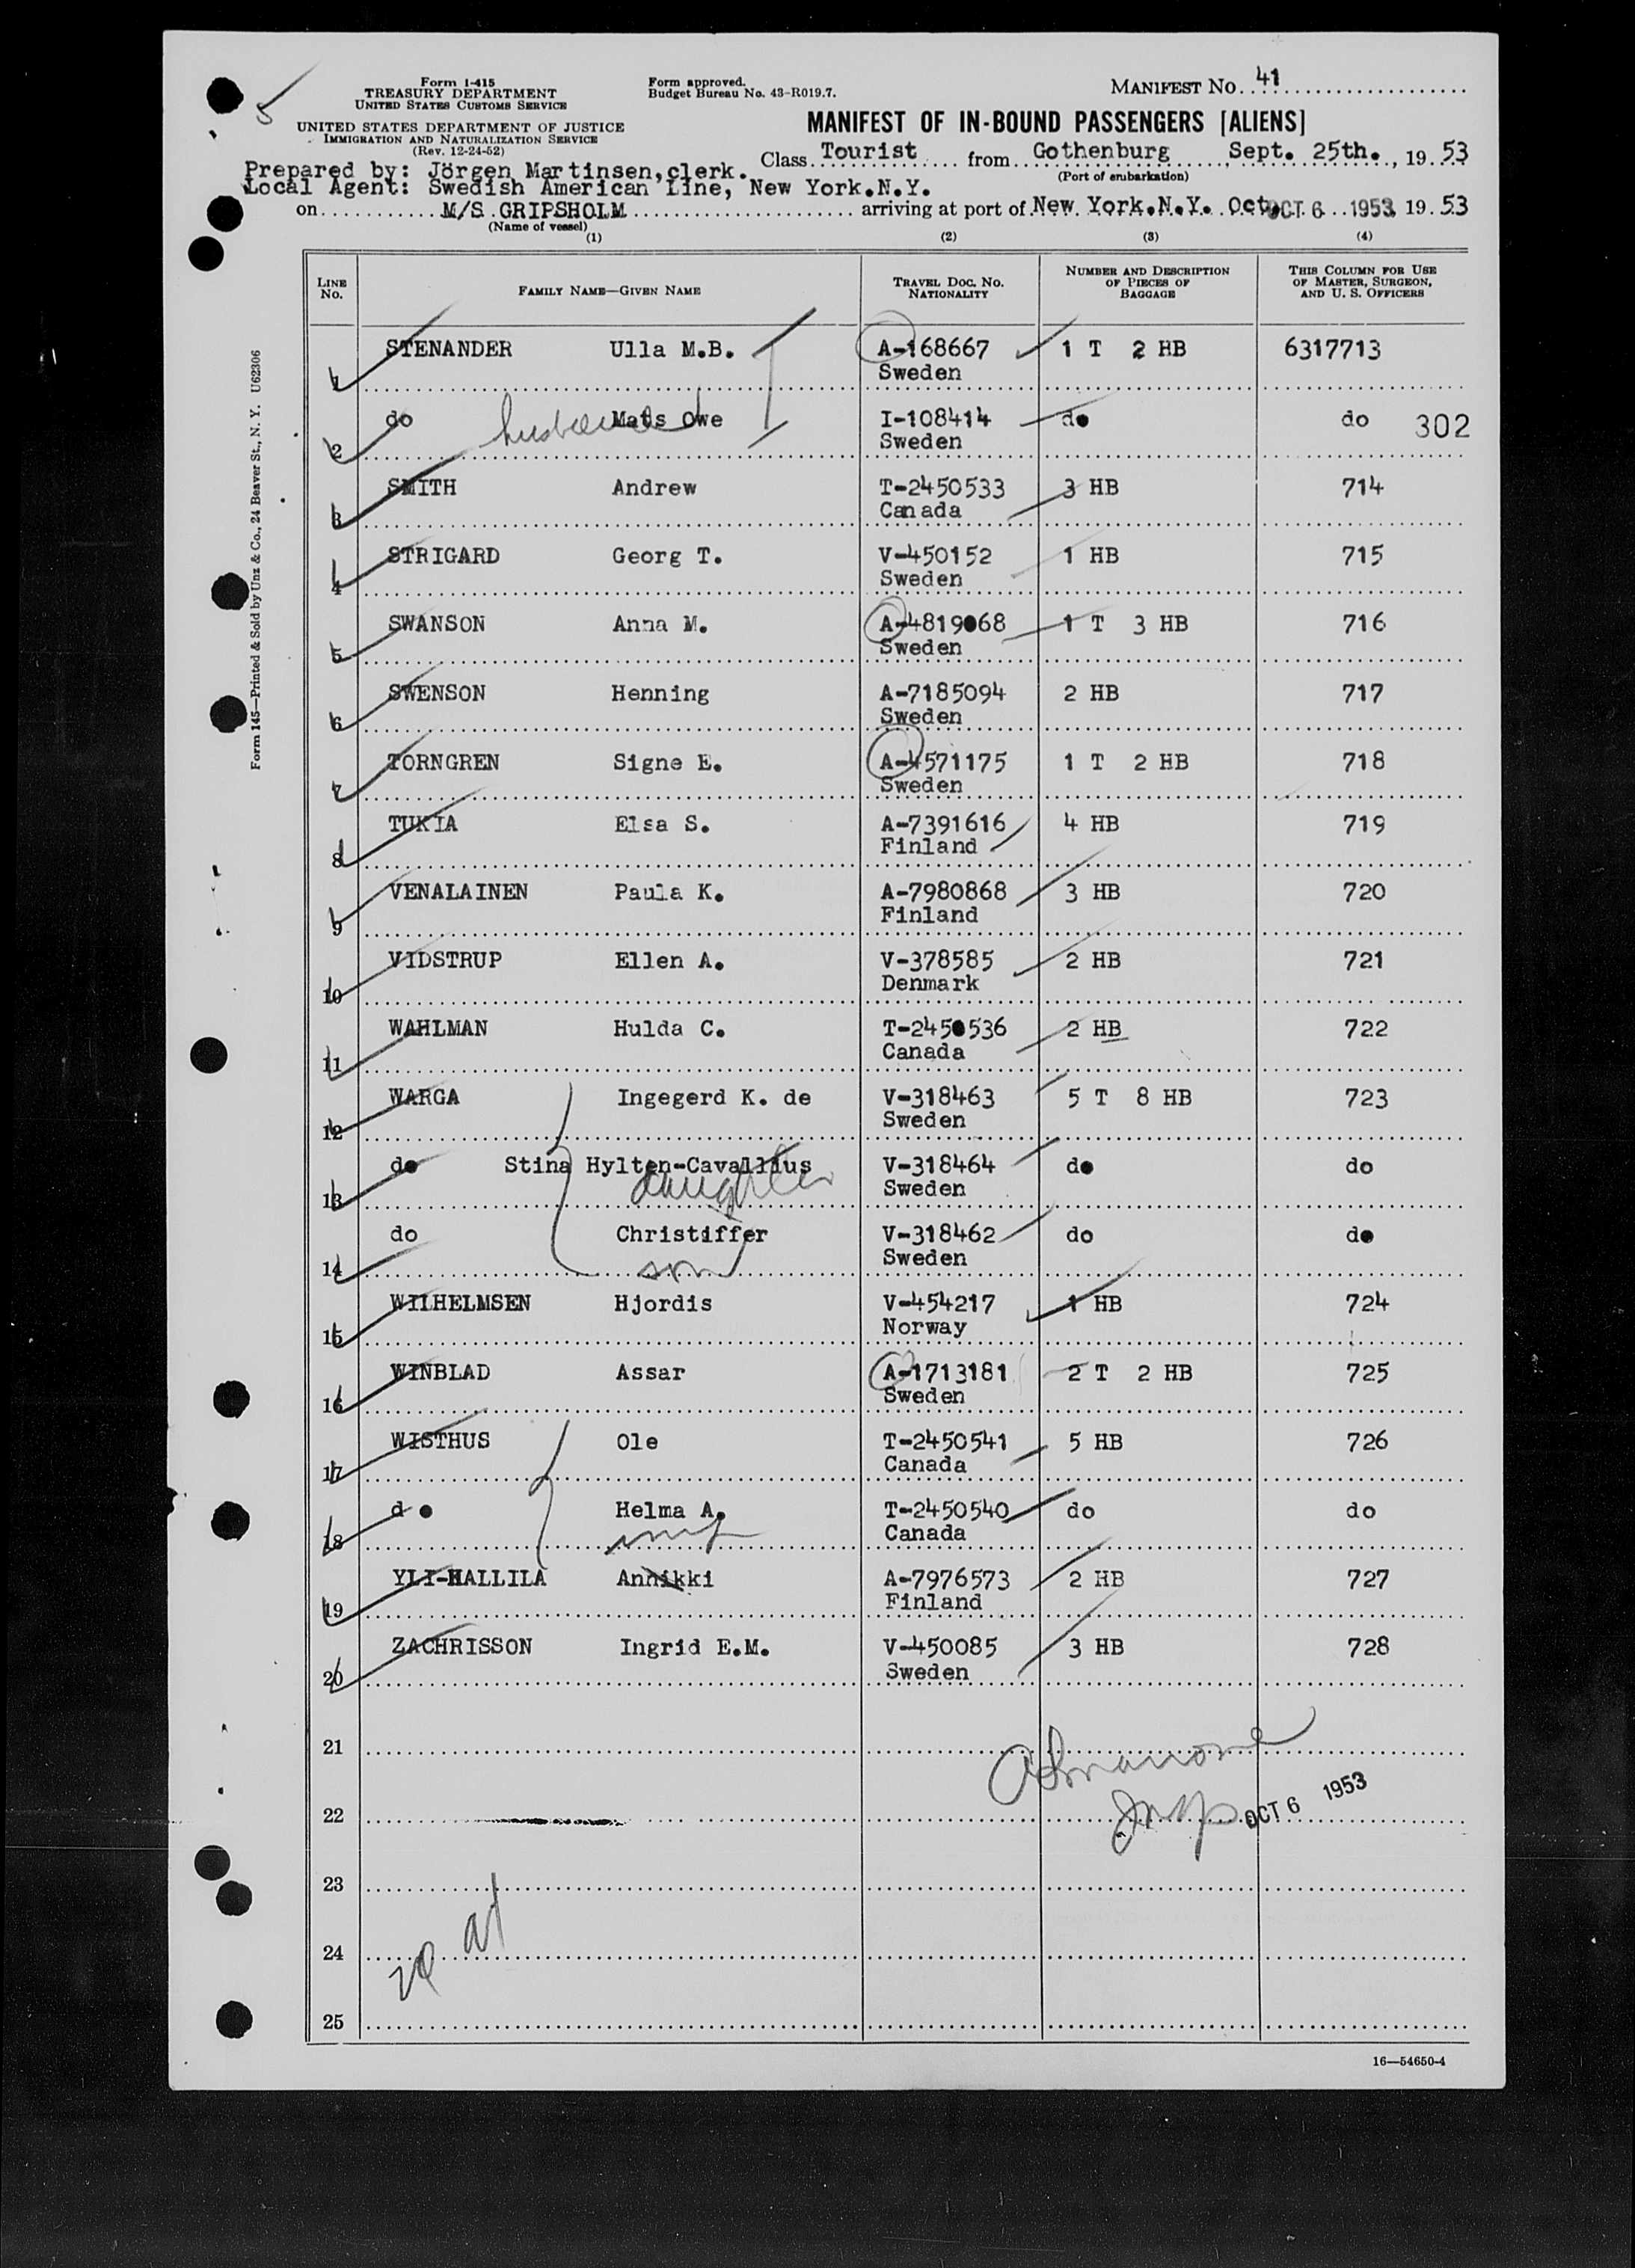 Form I-415
TREASURY DEPARTMENT
UNITED STATES CUSTOMS SERVICE
Form approved.
Budget Bureau No. 43-R019.7.
MANIFEST NO. 41
UNITED STATES DEPARTMENT OF JUSTICE
IMMIGRATION AND NATURALIZATION SERVICE
(Rev. 12-24-52)
MANIFEST OF IN-BOUND PASSENGERS [ALIENS]
Class Tourist from Gothenburg Sept. 25th., 1953
(Port of embarkation)
Prepared by: Jörgen Martinsen,clerk.
Local Agent: Swedish American Line, New York.N.Y.
on M/S GRIPSHOLM arriving at port of New York.N.Y. Oct. OCT 6 1953, 1953
(Name of vessel)
(1) (2) (3) (4)
LINE NO. FAMILY NAME—GIVEN NAME TRAVEL DOC. NO. NATIONALITY NUMBER AND DESCRIPTION OF PIECES OF BAGGAGE THIS COLUMN FOR USE OF MASTER, SURGEON, AND U. S. OFFICERS
1 STENANDER Ulla M.B. A-168667 1 T 2 HB 6317713
Sweden
2 do husband Mats Owe I-108414 do do 302
Sweden
3 SMITH Andrew T-2450533 3 HB 714
Canada
4 STRIGARD Georg T. V-450152 1 HB 715
Sweden
5 SWANSON Anna M. A-4819068 1 T 3 HB 716
Sweden
6 SWENSON Henning A-7185094 2 HB 717
Sweden
7 TORNGREN Signe E. A-4571175 1 T 2 HB 718
Sweden
8 TUKIA Elsa S. A-7391616 4 HB 719
Finland
9 VENALAINEN Paula K. A-7980868 3 HB 720
Finland
10 VIDSTRUP Ellen A. V-378585 2 HB 721
Denmark
11 WAHLMAN Hulda C. T-2450536 2 HB 722
Canada
12 WARGA Ingegerd K. de V-318463 5 T 8 HB 723
Sweden
13 do Stina Hylten-Cavallius V-318464 do do
daughter Sweden
14 do Christiffer V-318462 do do
son Sweden
15 WILHELMSEN Hjordis V-454217 1 HB 724
Norway
16 WINBLAD Assar A-1713181 2 T 2 HB 725
Sweden
17 WISTHUS Ole T-2450541 5 HB 726
Canada
18 do Helma A. T-2450540 do do
Canada
19 YLI-HALLILA Annikki A-7976573 2 HB 727
Finland
20 ZACHRISSON Ingrid E.M. V-450085 3 HB 728
Sweden
21
22 OCT 6 1953
23
24
25
16—54650-4
Form 145—Printed & Sold by Unz & Co., 24 Beaver St., N. Y. U62306